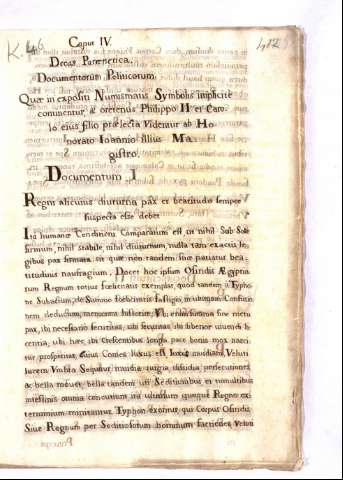 K. 46
412
Caput IV.
Decas Parenetica
Documentorum Politicorum.
Quæ in expositi Numismatis Symbolis implicitè
continentur, & oretenus Philippo II et Caro
lo eius filio prælecta Videntur ab Ho
norato Ioannio illius Ma
gistro.
Documentum I
Regni alicuius diuturna pax et beatitudo semper
suspecta esse debet
Ita humanæ Conditioni Comparatum est ut nihil Sub Sole
firmum, nihil stabile, nihil diuturnum, nulla tam exactis le
gibus pax firmata sit quæ non tandem suæ patiatur bea
titudinis naufragium, Docet hoc ipsum Osiridis Ægyptia
cum Regnum totius fœlicitatis exemplar, quod tandem à Typho
ne Subactum, de Summo fœlicitatis fastigio in ultimam Confusio
nem deductum, memorant historiæ; Ubi enim summa sine metu
pax, ibi necessario securitas, ubi securitas, ibi liberior uiuendi li
centia, ubi hæc, ibi Crescentibus longa pace bonis mox nasci
tur prosperitas, cuius Comes luxus est luxus inuidiam, Veluti
lucem Umbra Sequitur, inuidiæ iurgia, dissidia, persecutiones
& bella mouet, bella tandem uti Seditionibus et tumultibus
intestinis omnia concutiunt ita ultimum quoque Regno ex
terminium minitantur. Typhon exoritur, qui Corpus Osiridis
Siue Regnum per Seditiosorum hominum factiones Veluti